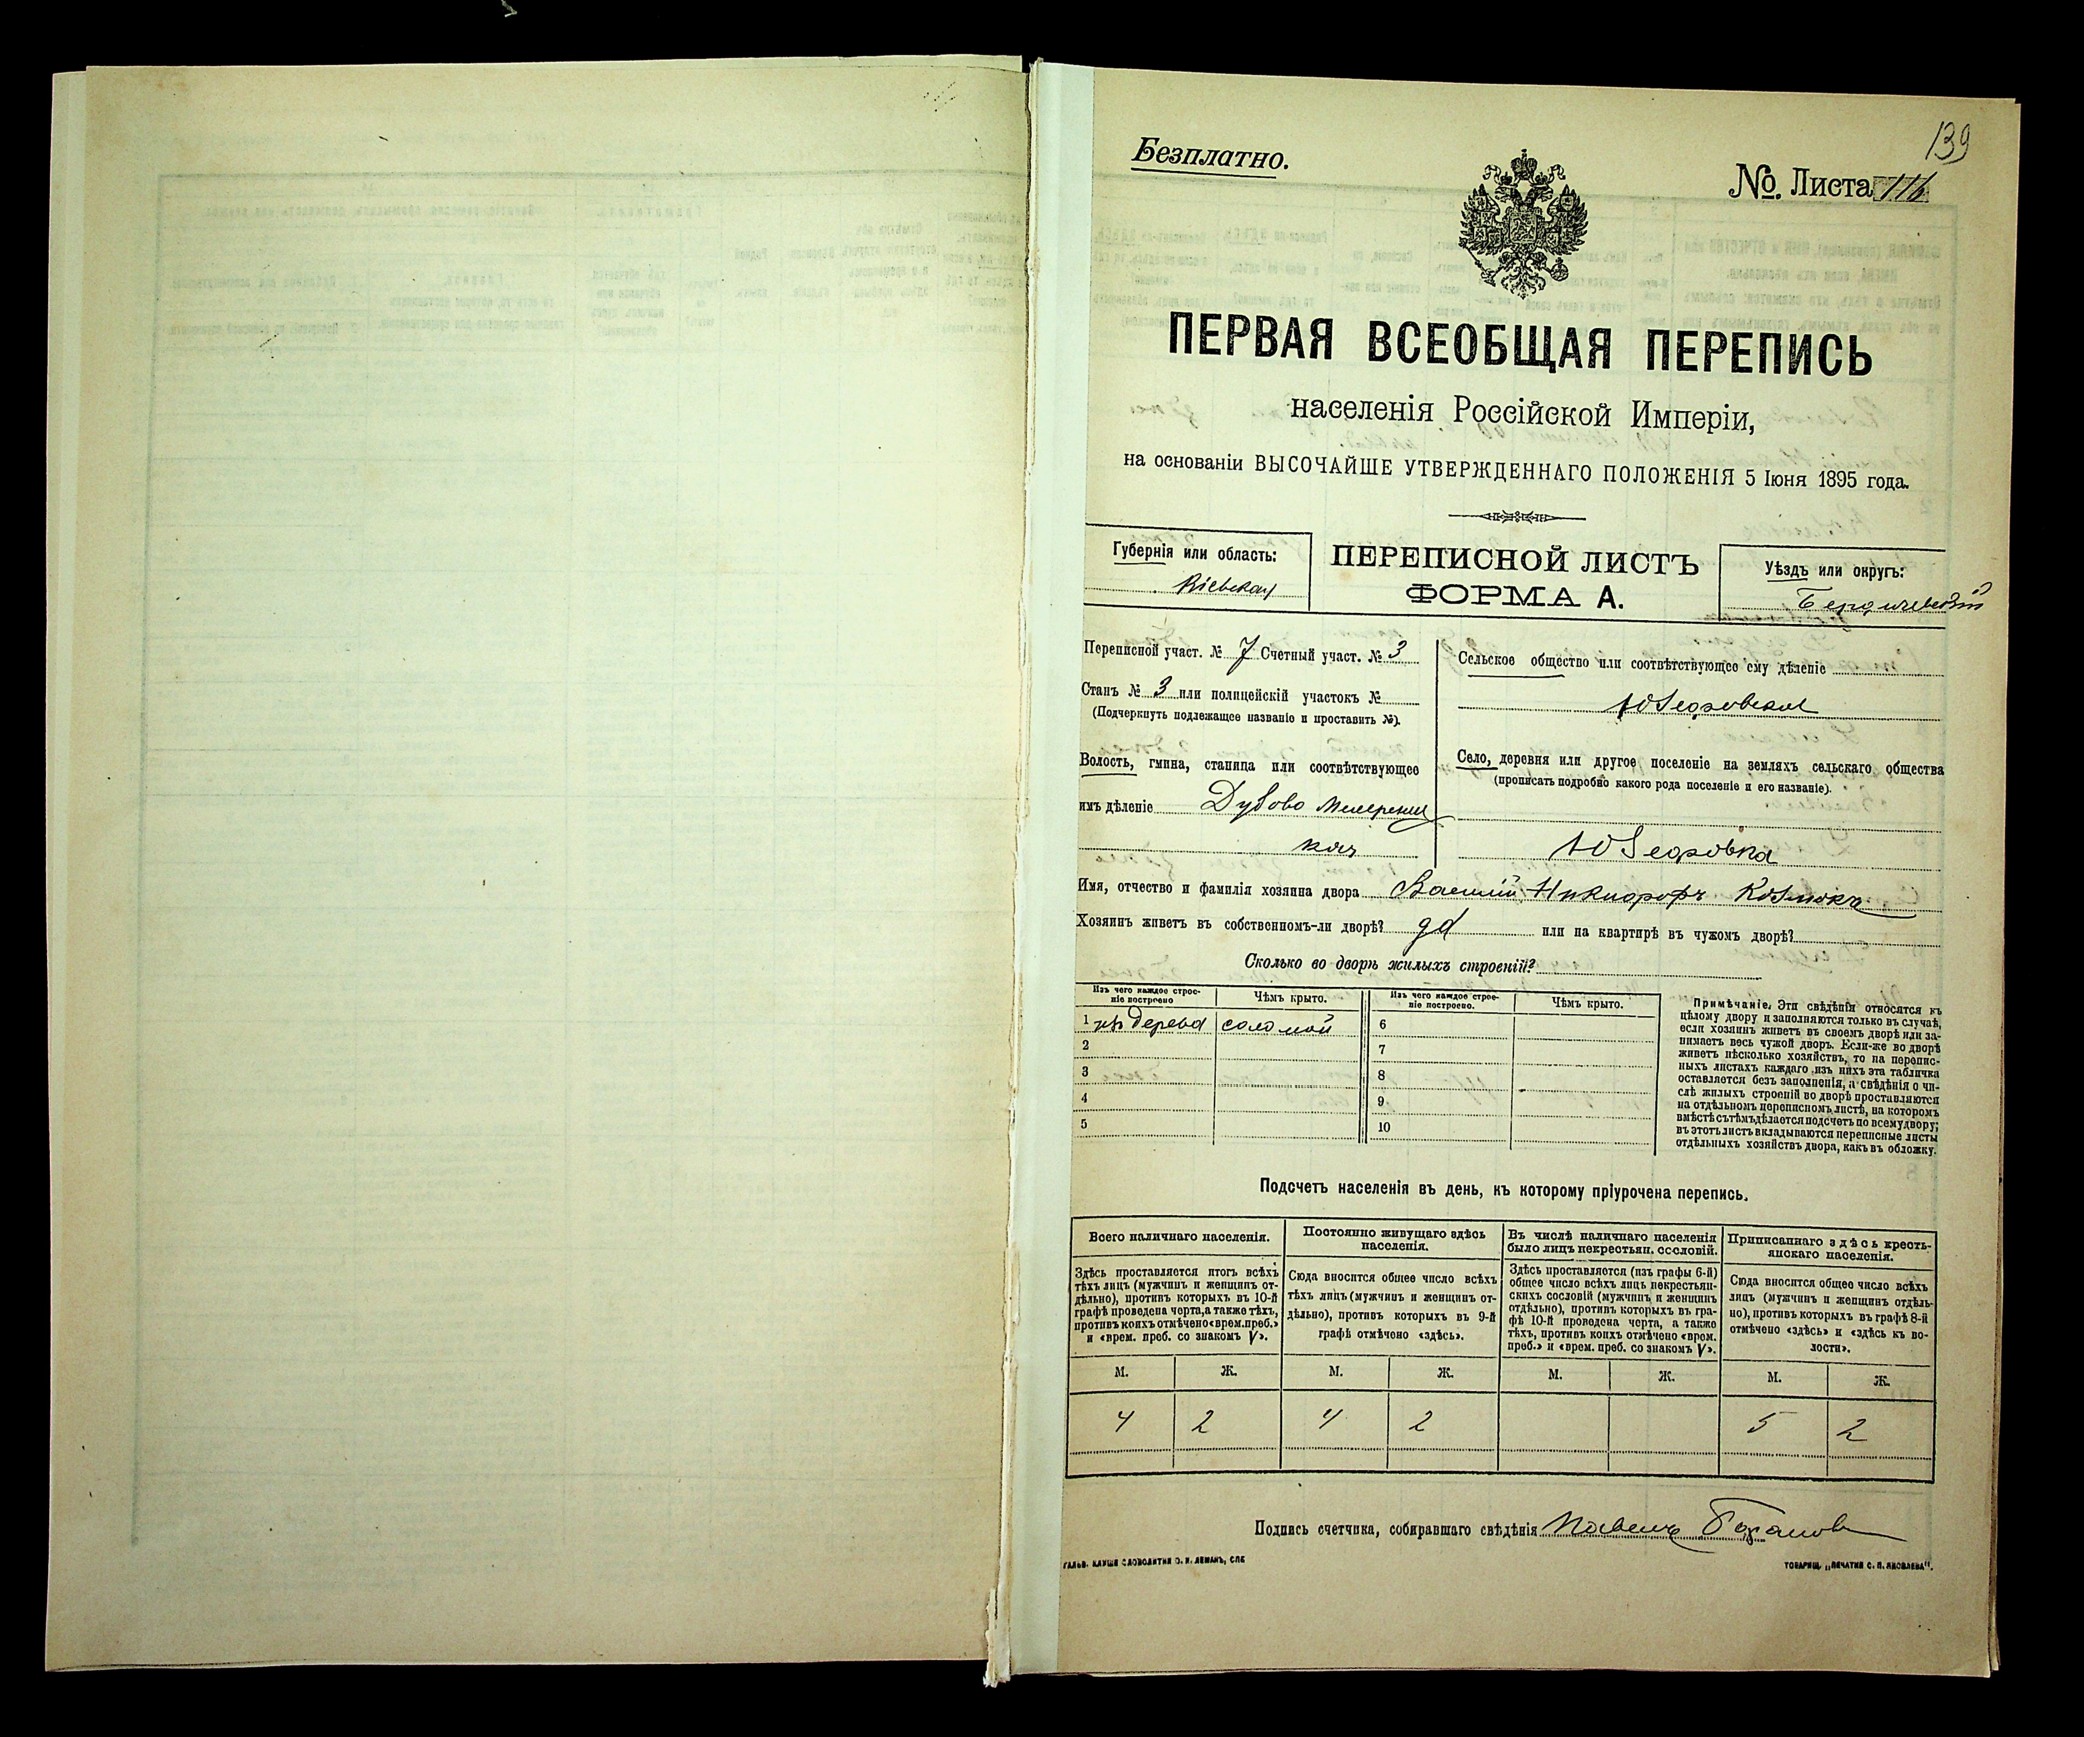 139
Безплатно.
№ Листа 116
ПЕРВАЯ ВСЕОБЩАЯ ПЕРЕПИСЬ
населенія Россійской Имперіи,
на основаніи ВЫСОЧАЙШЕ УТВЕРЖДЕННАГО ПОЛОЖЕНІЯ 5 Іюня 1895 года.
Губернія или область:
Кіевская
ПЕРЕПИСНОЙ ЛИСТЪ
ФОРМА А.
Уѣздъ или округъ:
Бердичевскій
Переписной участ. № 7 Счетный участ. № 3
Станъ № 3 или полицейскій участокъ №
(Подчеркнуть подлежащее названіе и проставить №).
Волость, гмина, станица или соотвѣтствующее
имъ дѣленіе Дубово Мехерин
кая
Сельское общество или соотвѣтствующее ему дѣленіе
Село, деревня или другое поселеніе на земляхъ сельскаго общества
(прописать подробно какого рода поселеніе и его названіе).
Имя, отчество и фамилія хозяина двора Василій Никифоръ
Хозяинъ живетъ въ собственномъ-ли дворѣ? да или на квартирѣ въ чужомъ дворѣ?
Сколько во дворѣ жилыхъ строеній?
Изъ чего каждое строе-
ніе построено
Чѣмъ крыто.
Изъ чего каждое строе-
ніе построено.
Чѣмъ крыто.
1 изъ дерева соломой
2
3
4
5
6
7
8
9
10
Примѣчаніе. Эти свѣдѣнія относятся къ
цѣлому двору и заполняются только въ случаѣ,
если хозяинъ живетъ въ своемъ дворѣ или за-
нимаетъ весь чужой дворъ. Если-же во дворѣ
живетъ нѣсколько хозяйствъ, то на перепис-
ныхъ листахъ каждаго изъ нихъ эта табличка
оставляется безъ заполненія, а свѣдѣнія о чи-
слѣ жилыхъ строеній во дворѣ проставляются
на отдѣльномъ переписномъ листѣ, на которомъ
вмѣстѣ съ тѣмъ дѣлается подсчетъ по всему двору;
въ этотъ листъ вкладываются переписные листы
отдѣльныхъ хозяйствъ двора, какъ въ обложку.
Подсчетъ населенія въ день, къ которому пріурочена перепись.
Всего наличнаго населенія.
Здѣсь проставляется итогъ всѣхъ
тѣхъ лицъ (мужчинъ и женщинъ от-
дѣльно), противъ которыхъ въ 10-й
графѣ проведена черта, а также тѣхъ,
противъ коихъ отмѣчено «врем. преб.»
и «врем. преб. со знакомъ V».
Постоянно живущаго здѣсь
населенія.
Сюда вносится общее число всѣхъ
тѣхъ лицъ (мужчинъ и женщинъ от-
дѣльно), противъ которыхъ въ 9-й
графѣ отмѣчено «здѣсь».
Въ числѣ наличнаго населенія
было лицъ некрестьян. сословій.
Здѣсь проставляется (изъ графы 6-й)
общее число всѣхъ лицъ некрестьян-
скихъ сословій (мужчинъ и женщинъ
отдѣльно), противъ которыхъ въ гра-
фѣ 10-й проведена черта, а также
тѣхъ, противъ коихъ отмѣчено «врем.
преб.» и «врем. преб. со знакомъ V».
Приписаннаго здѣсь кресть-
янскаго населенія.
Сюда вносится общее число всѣхъ
лицъ (мужчинъ и женщинъ отдѣль-
но), противъ которыхъ въ графѣ 8-й
отмѣчено «здѣсь» и «здѣсь къ во-
лости».
М. Ж. М. Ж. М. Ж. М. Ж.
4 2 4 2 5 2
Подпись счетчика, собиравшаго свѣдѣнія Павелъ
ГАЛЬВ. КЛИШЕ СЛОВОЛИТНИ О. И. ЛЕМАНЪ, СПБ
ТОВАРИЩ. „ПЕЧАТНЯ С. П. ЯКОВЛЕВА".